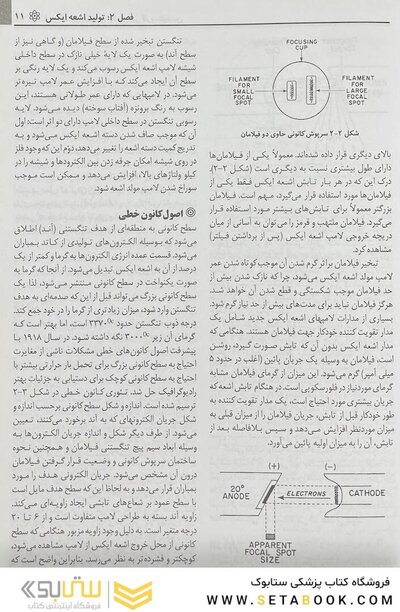 فصل ۲: تولید اشعه ایکس
۱۱
FOCUSING
CUP
FILAMENT
FOR
SMALL
FOCAL
SPOT
FILAMENT
FOR
LARGE
FOCAL
SPOT
شکل ۲-۲ سرپوش کانونی حاوی دو فیلامان
بالای دیگری قرار داده شده‌اند. معمولاً یکی از فیلامان‌ها
دارای طول بیشتری نسبت به دیگری است (شکل ۲-۲).
درک این که در هر بار تابش اشعه ایکس فقط یکی از
فیلامان‌ها مورد استفاده قرار می‌گیرد، مهم است. فیلامان
بزرگتر معمولاً برای تابش‌های بیشتر مورد استفاده قرار
می‌گیرد. فیلامان ملتهب و قرمز را می‌توان به آسانی از میان
دریچه خروجی لامپ اشعه ایکس (پس از برداشتن فیلتر)
مشاهده کرد.
تبخیر فیلامان براثر گرم شدن آن موجب کوتاه شدن عمر
لامپ مولد اشعه ایکس می‌شود، چرا که نازک شدن بیش از
حد فیلامان موجب شکستگی و قطع شدن آن خواهد شد.
هرگز فیلامان نباید برای مدت‌های بیش از حد نیاز گرم شود.
بسیاری از مدارات لامپهای اشعه ایکس جدید شامل یک
مدار تقویت کننده خودکار جهت فیلامان هستند. هنگامی که
مدار اشعه ایکس بدون آن که تابش صورت گیرد، روشن
است، فیلامان به وسیله یک جریان پائین (اغلب در حدود ۵
میلی آمپر) گرم می‌شود. این میزان از گرمای فیلامان مشابه
گرمای موردنیاز در فلورسکوپی است. در هنگام تابش اشعه که
جریان بیشتری مورد احتیاج است، یک مدار تقویت کننده به
طور خودکار قبل از تابش، جریان فیلامان را از میزان قبلی به
میزان موردنظر افزایش می‌دهد و سپس بلافاصله بعد از
تابش، آن را به میزان اولیه پائین می‌آورد.
(+)
(-)
20°
ANODE
ELECTRONS
CATHODE
APPARENT
FOCAL SPOT
SIZE
تنگستن تبخیر شده از سطح فیلامان (و گاهی نیز از
سطح آند) به صورت یک لایهٔ خیلی نازک در سطح داخلی
شیشه لامپ اشعه ایکس رسوب می‌کند و یک لایه رنگی بر
سطح آن ایجاد می‌کند که با افزایش عمر لامپ تیره‌تر
می‌شود. در لامپهایی که دارای عمر طولانی هستند، این
رسوب به رنگ برونزه (آفتاب سوخته) دیده می‌شود. لایه
رسوبی تنگستن در سطح داخلی لامپ دارای دو اثر است: اول
آن که موجب صاف شدن دسته اشعه ایکس می‌شود و به
تدریج کمیت دسته اشعه را تغییر می‌دهد، دوم این که وجود فلز
در روی شیشه امکان جرقه زدن بین الکترودها و شیشه را در
کیلو ولتاژهای بالا، افزایش می‌دهد و ممکن است موجب
سوراخ شدن لامپ مولد اشعه شود.
اصول کانون خطی
سطح کانونی به منطقه‌ای از هدف تنگستنی (آند) اطلاق
می‌شود که بوسیله الکترونهای تولیدی از کاتد بمباران
می‌شود. قسمت عمده انرژی الکترون‌ها به گرما و کمتر از یک
درصد از آن به اشعه ایکس تبدیل می‌شود. از آنجا که گرما به
صورت یکنواخت در سطح کانونی منتشر می‌شود، لذا یک
سطح کانونی بزرگ می‌تواند قبل از این که صدمه‌ای به هدف
تنگستن وارد شود، میزان زیادتری از گرما را در خود جمع کند.
درجه ذوب تنگستن حدود ۳۳۷۰°c است، اما بهتر است که
گرمای آن زیر ۳۰۰۰°c نگه داشته شود. در سال ۱۹۱۸ با
پیشرفت اصول کانون‌های خطی مشکلات ناشی از مغایرت
احتیاج به سطح کانونی بزرگ برای تحمل بار حرارتی بیشتر با
احتیاج به سطح کانونی کوچک برای دستیابی به جزئیات بهتر
رادیوگرافیک حل شد. تئوری کانون خطی در شکل ۳-۲
ترسیم شده است. اندازه و شکل سطح کانونی برحسب اندازه و
شکل جریان الکترونهای که به آند برخورد می‌کنند، تعیین
می‌شود. از طرف دیگر شکل و اندازه جریان الکترون‌ها به
وسیله ابعاد سیم پیچ تنگستنی فیلامان و همچنین نحوه
ساختمان سرپوش کانونی و وضعیت قرار گرفتن فیلامان
درون آن مشخص می‌شود. جریان الکترونی هدف را مورد
بمباران قرار می‌دهد و به لحاظ این که سطح هدف مایل است
با سطح عمود بر شعاع‌های تابشی ایجاد زاویه‌ای می‌کند.
زاویه آند بسته به طراحی لامپ متفاوت است و از ۶ تا ۲۰
درجه متغیر است. به دلیل وجود زاویه مزبور هنگامی که سطح
کانونی از محل خروج اشعه ایکس از لامپ مشاهده می‌شود،
کوچکتر و فشرده‌تر به نظر می‌رسد. بنابراین واضح است که
فروشگاه کتاب پزشکی ستابوک
WWW.SETABOOK.COM
ستابوک
فروشگاه اینترنتی کتاب